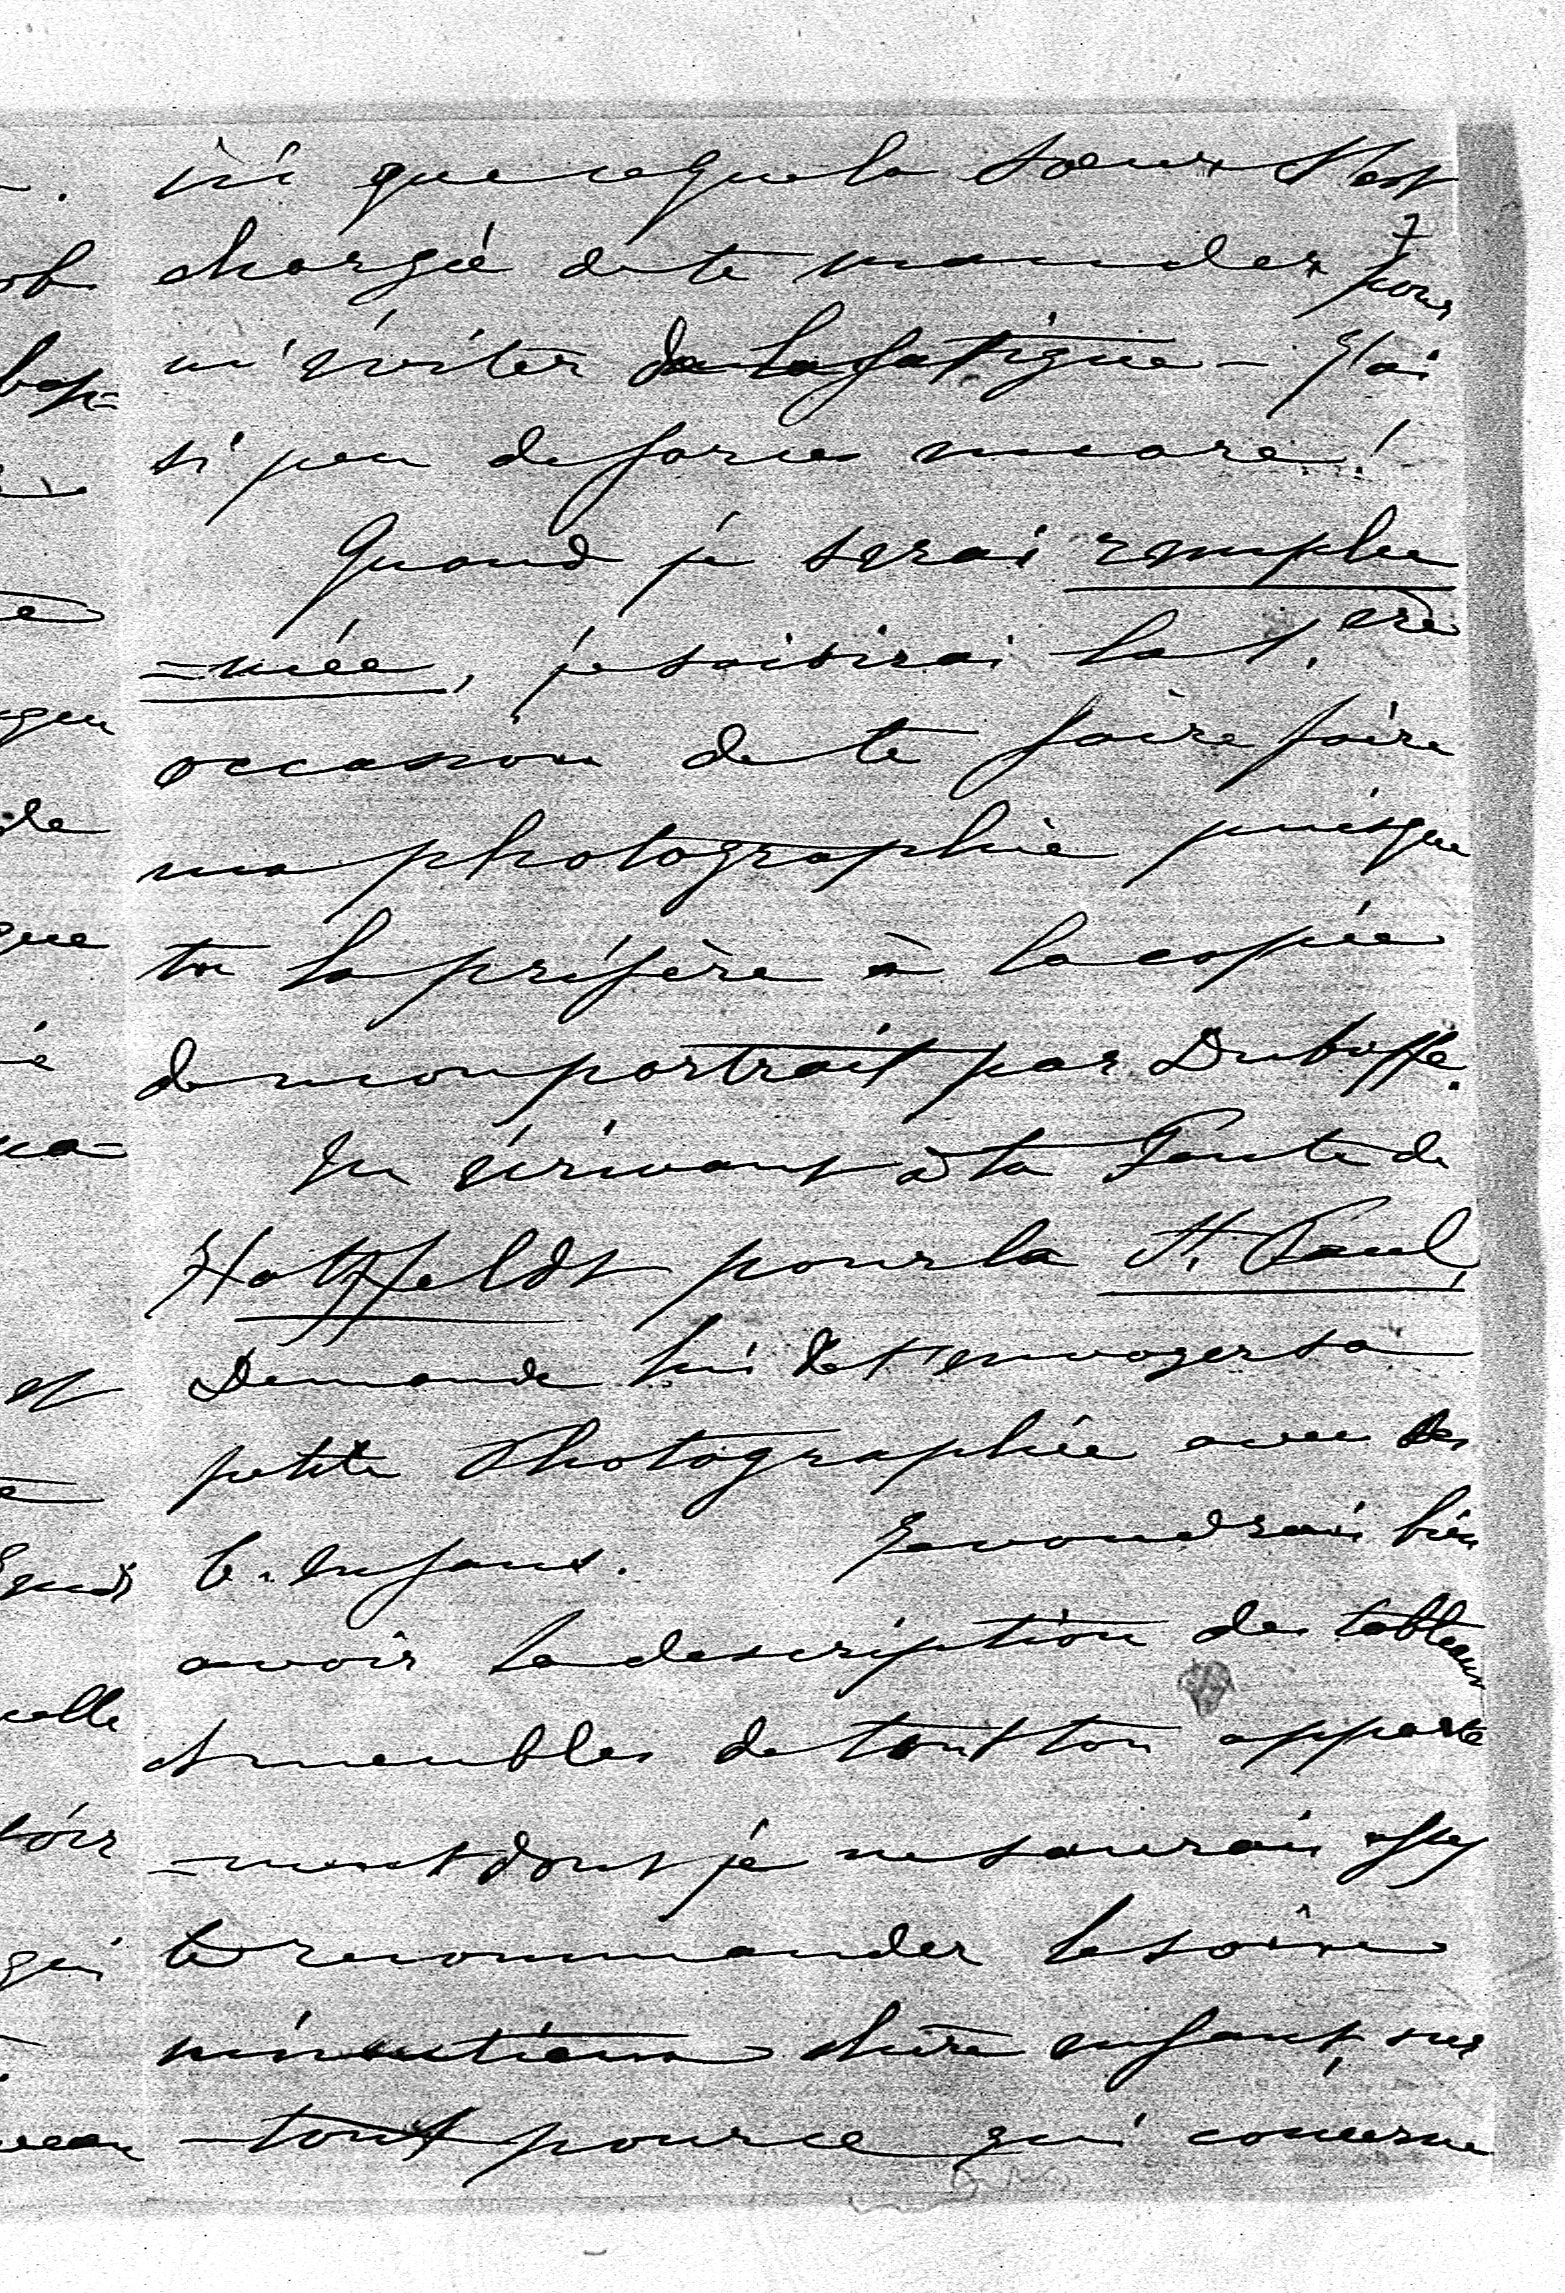 ici que ce que la soeur s'est
chargée de te mander pour
m'éviter de la fatigue - J'ai
si peu de forces encore!
Quand je serai remplu
=mée, je saisirai la 1.ère
occasion de te faire faire
ma photographie puisque
tu la préfère à la copie
de mon portrait par Dubuffe.
En écrivant à ta Tante de
Hatzfeldt pour la St. Paul,
Demande lui de t'envoyer sa
petite Photographie avec ses
b. enfans. Je voudrais bien
avoir la description des tableaux
et meubles de tout ton apparte
=ment dont je ne saurais assez
te recommander le soins
minutieux chère enfant, sur
-tout pour ce qui concerne